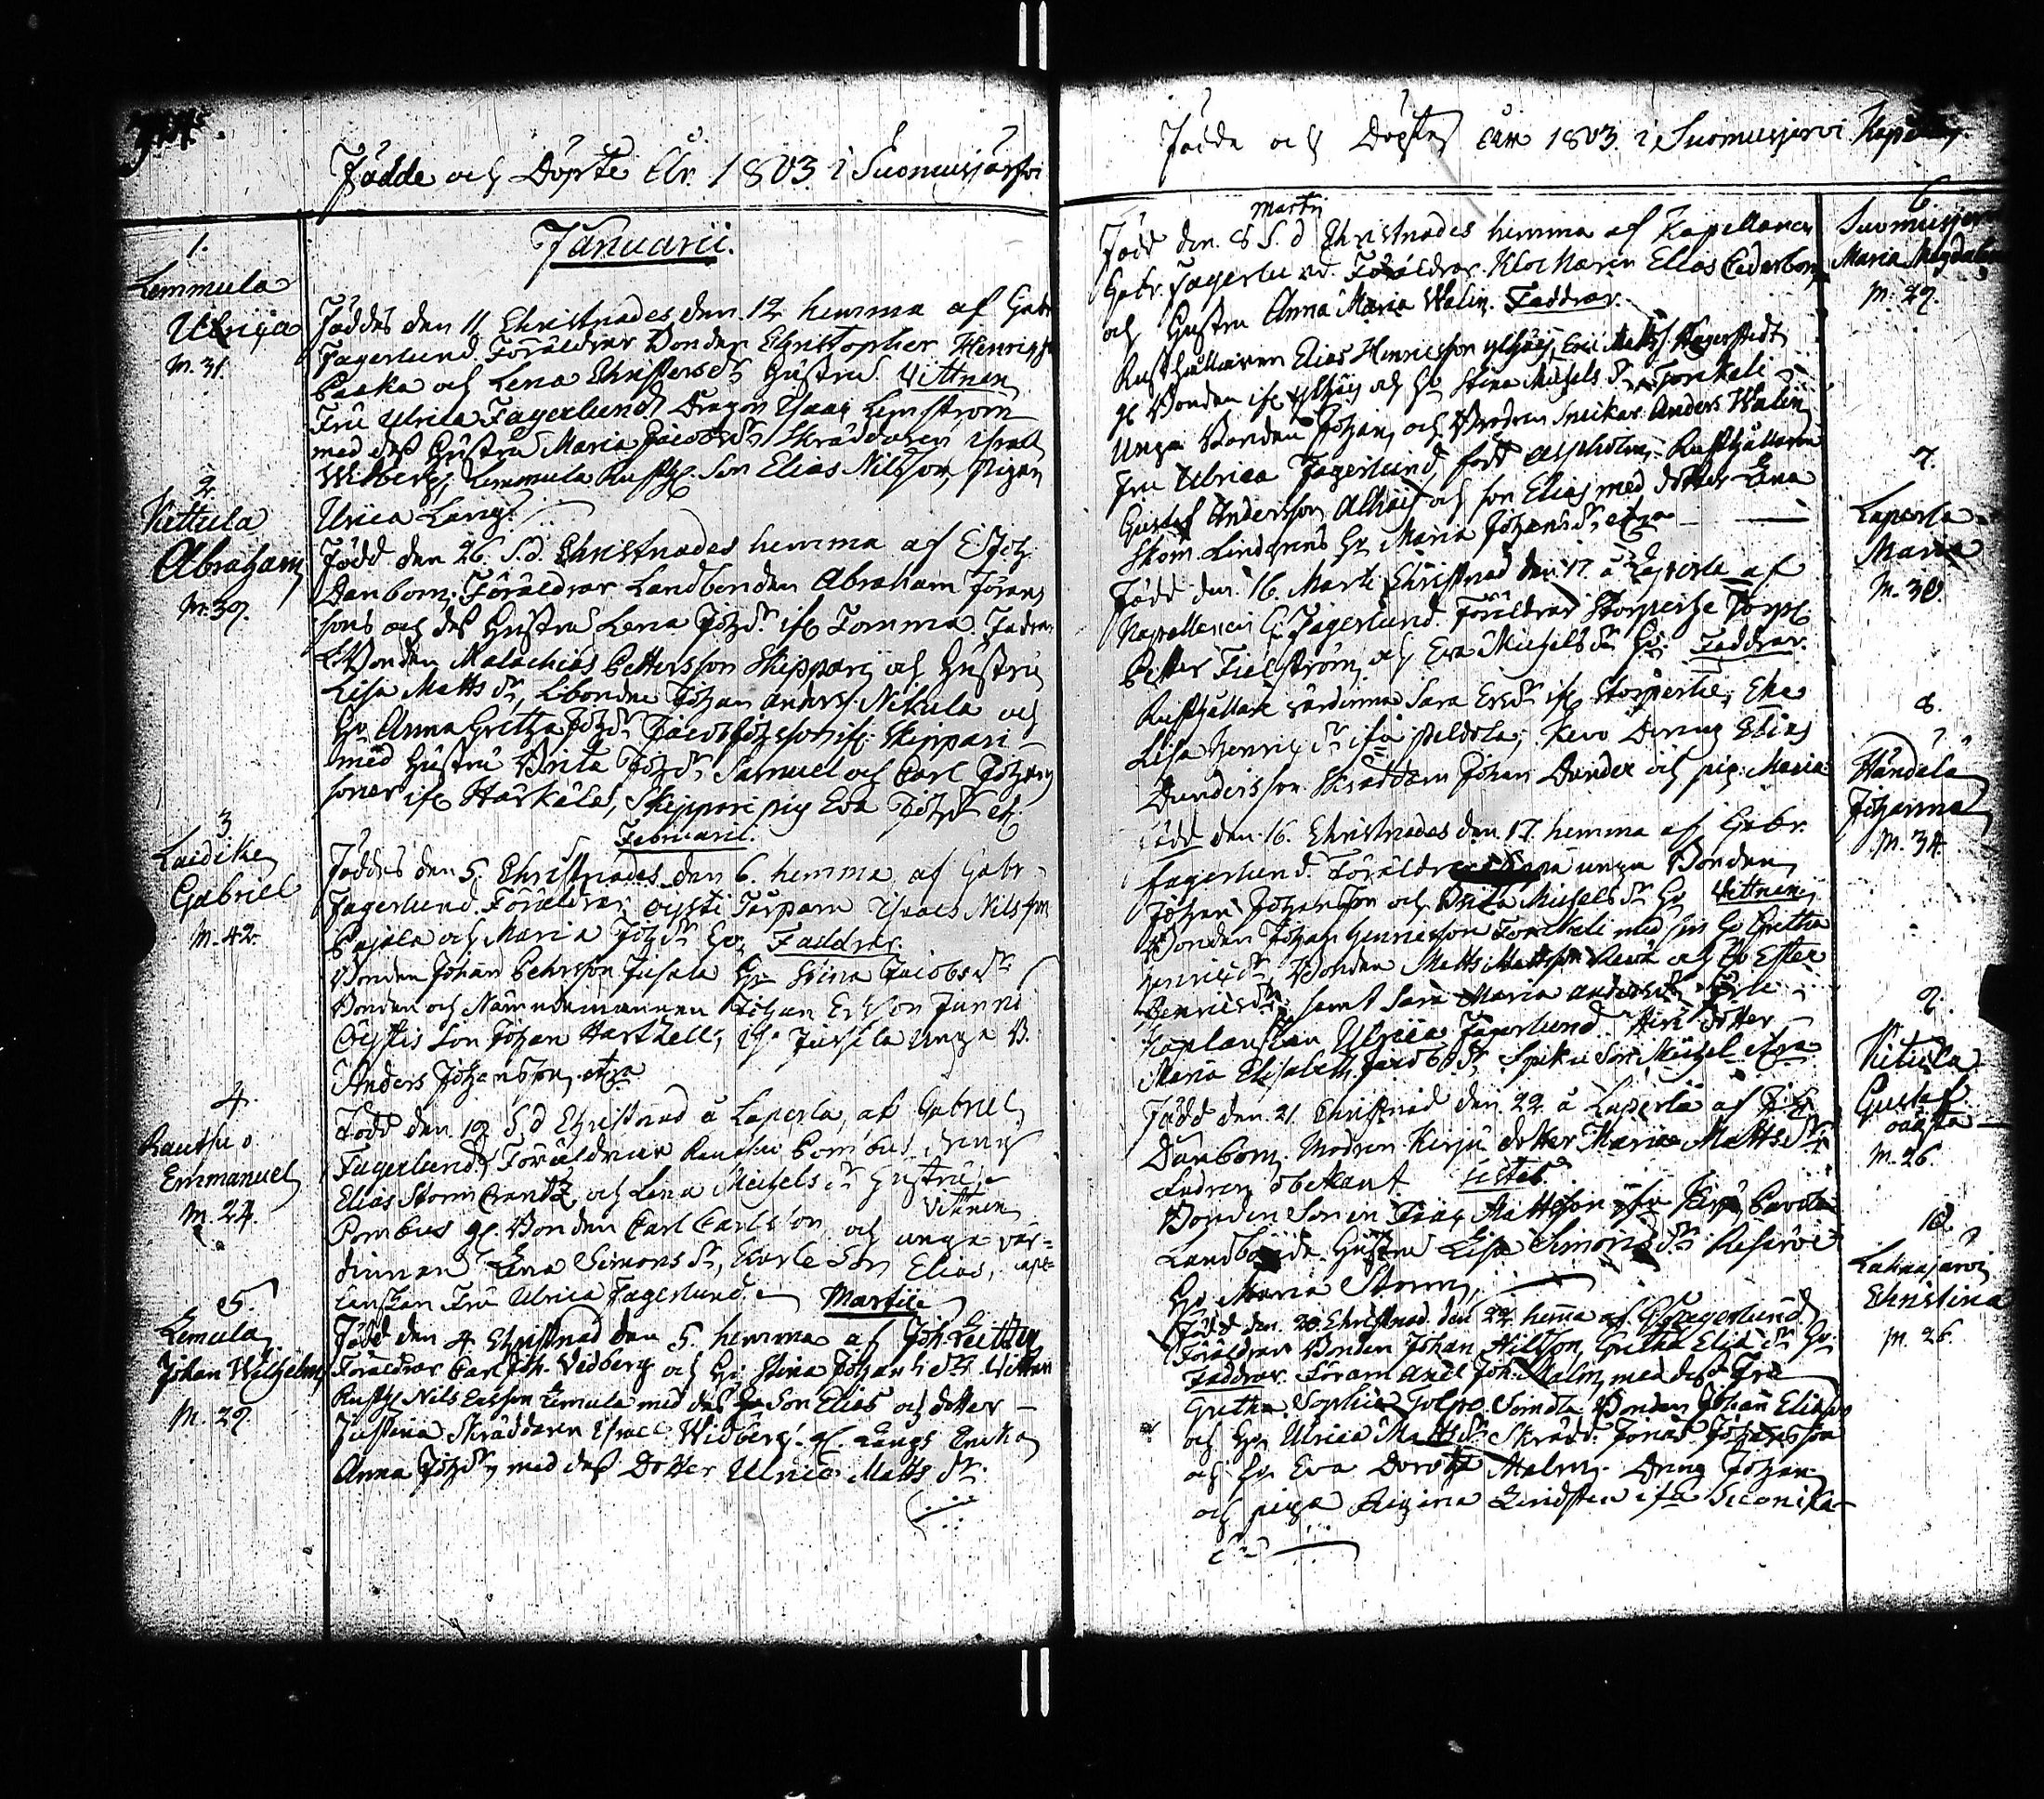 Födde och Döpte År. 1803. i Suomusjärfvi
Januarii.
1.
Lemmula
Ulrica
M. 31.
Föddes den 11 Christnades den 12 hemma af Gabr
Fagerlund. Föräldrar Bonden Christopher Henrigss
Paaka och Lena Christersdr Hustru. Vittnen
Fru Ulrica Fagerlund, Dragon Isaac Lemström
med dess Hustru Maria Jacobsdr Skräddaren Israel
Widberg, Lemmula Rusth. Son Elias Nilsson, Pigan
Ulrica Lang.
2.
Kettula
Abraham
M. 39.
Född den 26. S.d. Christnades hemma af Joh.
Danbom; Föräldrar Landbonden Abraham Jörans
sons och dess Hustru Lena Johdr. ifr. Tomma. Fadrar
Bonden Malachias Pettersson Skippari och Hustru
Lisa Matts dr, Lbonden Johan Anders. Nikula och
Hu. Anna Gretha Johdr Jacob Johsson ifr. Skippari
med Hustru Brita Johdr, Samuel och Carl Johans
söner ifr. Härkälä, Skippari pig Eva Johdr etc.
Februarii.
3.
Laidike
Gabriel
M. 42.
Föddes den 5. Christnades den 6. hemma af Gabr.
Fagerlund. Föräldrar Torparn Isaac Nilsson
Pajala och Maria Johdr Hu. Faddrar.
Bonden Johan Pehrsson Hu Stina Jacobsdr
Bonden och Nämndemannen Johan Ersson Junni
Son Johan Hartzell, unga B.
Anders Johansson, etcra
4.
Rautsuo
Emmanuel
M. 24.
Född den 19 S.d Christnad å Laperla, af Gabriel
Fagerlund, Föräldrar Rautsuo
Elias Storm Crantz, och Lena Michels dr Hustru
Vittnen
Pombus gl. Bonden Carl Carlsson och unga vär=
dinnan Lena Simons dr, Son Elias,
Fru Ulrica Fagerlund.
Martii
5.
Lemula
Johan Wilhelm
M. 29.
Född den 4. Christnad den 5. hemma af Joh. Leitzen
Föräldrar Carl Joh. Vidberg och Hu. Stina Johansdr Vittnen
Rusth Nils Ersson Lemula med dess Son Elias och dotter
Justina Skräddaren Israel Widberg. gl. Långs Enka
Anna Johdr, med dess Dotter Ulrica Matts dr.
Födde och Döpte åhr 1803. i Suomusjärvi Kapell
6.
Suomusjärvi
Maria Magdalena
M. 29.
Martii
Född den 8 S.d Christnades hemma af Kapellanen
Gabr. Fagerlund. Föräldrar Klockaren Elias Cederborg
och Hustru Anna Maria Walin. Faddrar.
Rusthållaren Elias Henricsson Ylhäis, Eric Matts. Hagerstedt
gl. Bonden ifr. Ylhäis och Hu Stina Michels dr Torikeli
Unga Bonden Johan, och Brodren Snickar Anders Walin
Fru Ulrica Fagerlund, född Asplolin, Rusthållaren
Gustaf Andersson Alhais och son Elias med dotter Lena
Skom. Lindgrens Hu Maria Johansdr, etcra
7.
Laperla
Maria
M. 30.
Född den 16. Martii Christnad den 17. å Laperla af
Kapellanen G. Fagerlund. Föräldrar Storperhe Torp.
Petter Fielström, och Eva Michels dr Hu. Faddrar.
Rusthållare värdinna Sara Ersdr ifr. Storperhe,
Lisa Henrics dr ifrån peldola, Dreng Elias
Dundersson Skräddarn Johan Dunder och pig. Maria
8.
Händälä
Johanna
M. 34
Född den 16. Christnades den 17. hemma af Gabr.
Fagerlund. Föräldrar unga Bonden
Johan Johansson och Brita Michels dr Hu. Vittnen
Bonden Johan Henricsson Torikeli med sin Hu Gretha
Henricsdr, Bonden Matts Mattsson och Hu Ester
Henricsdr, samt Sara Maria Andersdr
Kaplanskan Ulrica Fagerlund. dotter
Maria Elisabeth Jacobsdr, Son Michel etcra
9.
Kitula
Gustaf
oäkta
M. 26.
Född den 21 Christnad den 22 å Laperla af
Danbom. Modren Kirju dotter Maria Mattsdr.
Fadren obekant testes.
Bonden Sonen Mattsson
Landbonde Hustru Lisa Simons dr
Hu Maria Storm,
10.
Lahnajärvi
Christina
M. 26.
Född den 20. Christnad den 22. hema af G Fagerlund.
Föräldrar Bonden Johan Nilsson, Gretha Elia dr Hu
Faddrar. Joh: Malm, med dess Fru
Gretha Sophia Bonden Johan Eliasson
och Hu Ulrica Mattsdr Skrädd. Jonas Johansson
och Eva Dorothe Malm. Dreng Johan
och piga Regina Lindsten ifrån